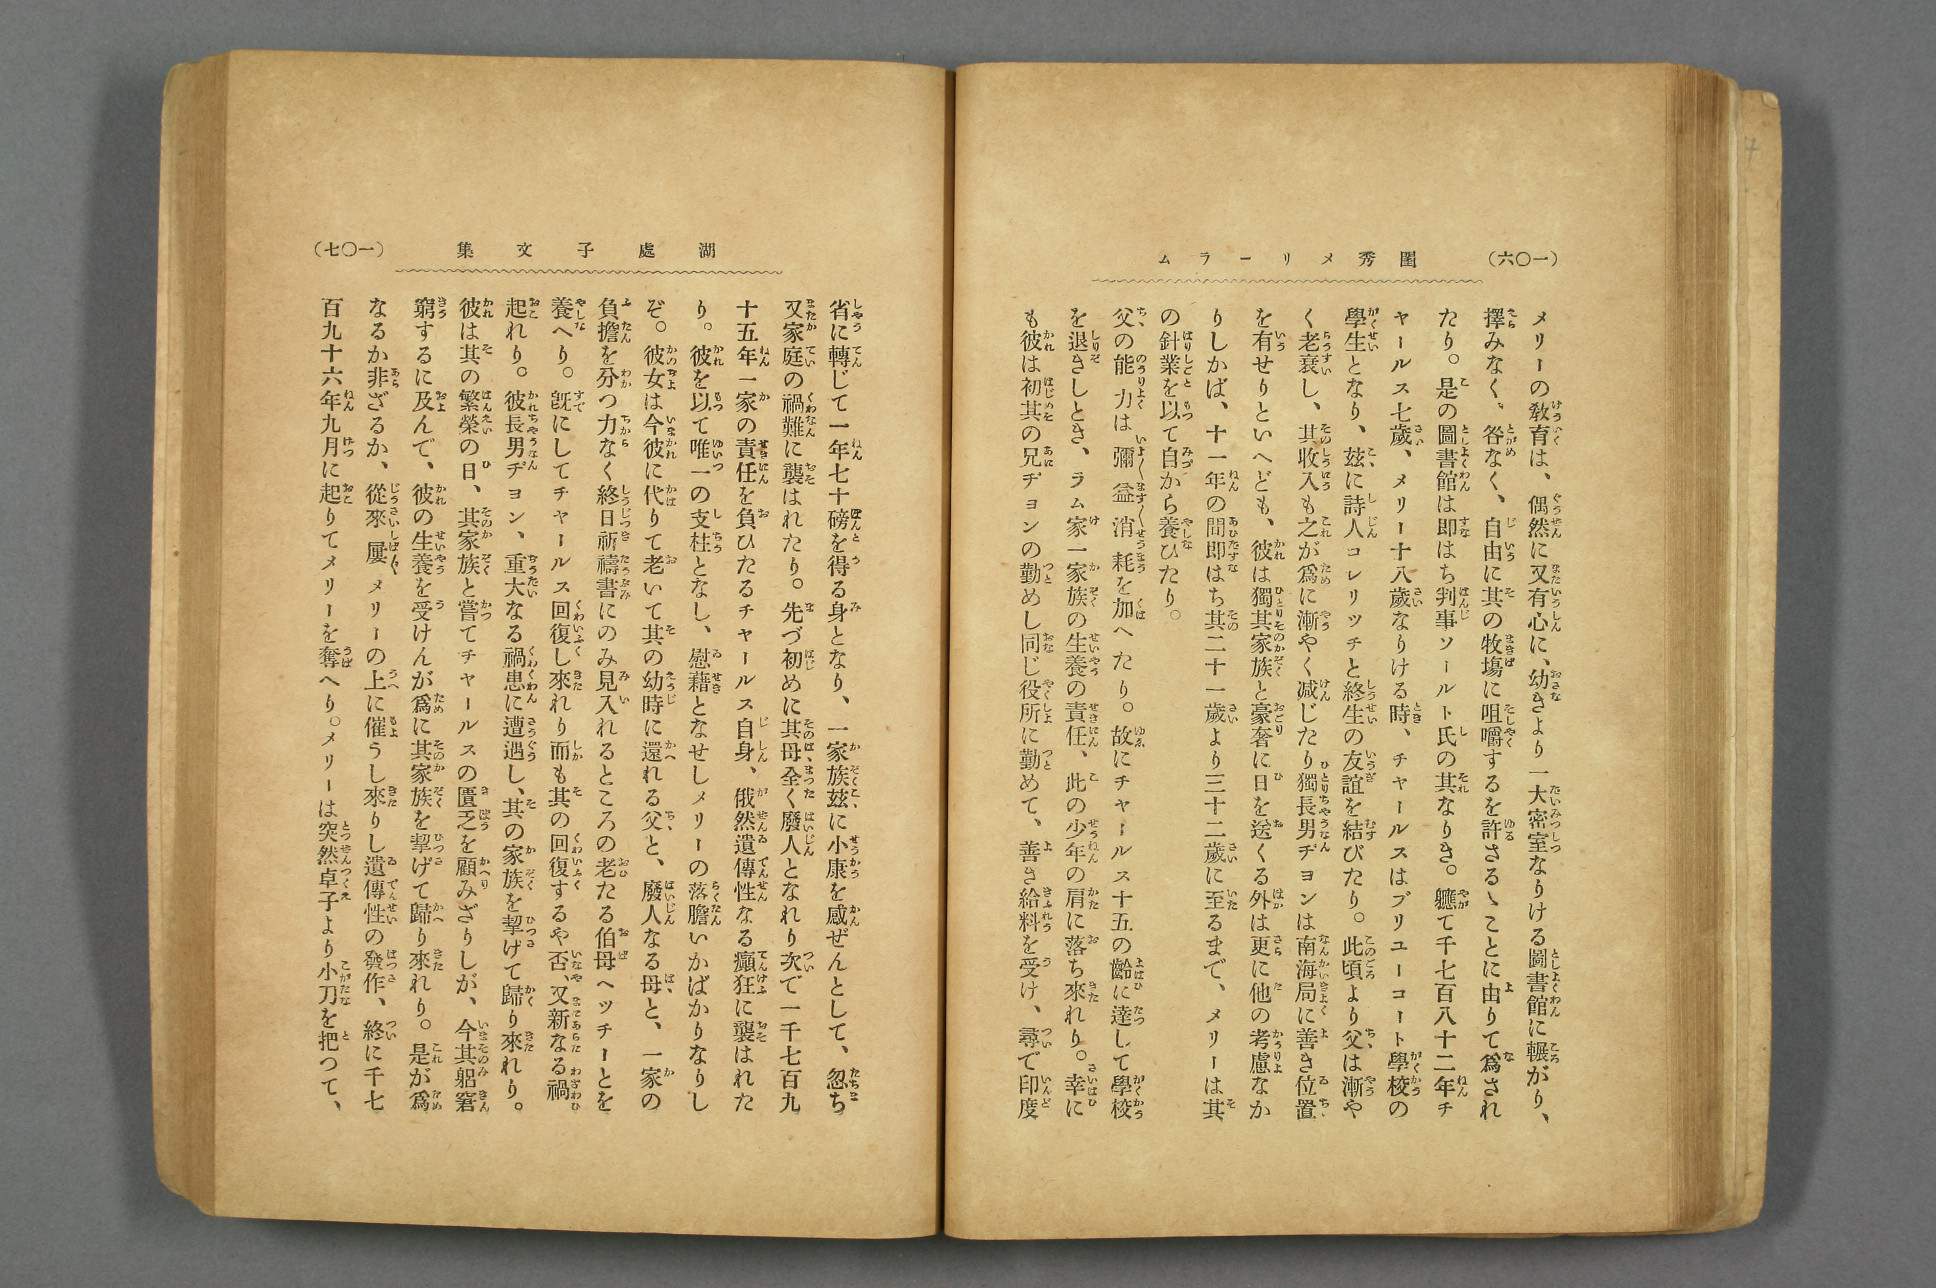 (一〇六)
閨秀メリーラム
メリーの敎育は、偶然に又有心に、幼きより一大密室なりける圖書館に輾がり、
擇みなく、咎なく、自由に其の牧塲に咀嚼するを許さるゝことに由りて爲され
たり。是の圖書館は即はち判事ソールト氏の其なりき。軈て千七百八十二年チ
ャールス七歲、メリー十八歲なりける時、チャールスはブリユーコート學校の
學生となり、玆に詩人コレリッチと終生の友誼を結びたり。此頃より父は漸や
く老衰し、其收入も之が爲に漸やく減じたり獨長男ヂョンは南海局に善き位置
を有せりといへども、彼は獨其家族と豪奢に日を送くる外は更に他の考慮なか
りしかば、十一年の間即はち其二十一歲より三十二歲に至るまで、メリーは其
の針業を以て自から養ひたり。
父の能力は彌益消耗を加へたり。故にチャールス十五の齡に達して學校
を退きしとき、ラム家一家族の生養の責任、此の少年の肩に落ち來れり。幸に
も彼は初其の兄ヂョンの勤めし同じ役所に勤めて、善き給料を受け、尋で印度
(一〇七)
湖處子文集
省に轉じて一年七十磅を得る身となり、一家族玆に小康を感ぜんとして、忽ち
又家庭の禍難に襲はれたり。先づ初めに其母全く廢人となれり次で一千七百九
十五年一家の責任を負ひたるチャールス自身、俄然遺傳性なる癲狂に襲はれた
り。彼を以て唯一の支柱となし、慰藉となせしメリーの落膽いかばかりなりし
ぞ。彼女は今彼に代りて老いて其の幼時に還れる父と、廢人なる母と、一家の
負擔を分つ力なく終日祈禱書にのみ見入れるところの老たる伯母ヘッチーとを
養へり。旣にしてチャールス回復し來れり而も其の回復するや否、又新なる禍
起れり。彼長男ヂョン、重大なる禍患に遭遇し、其の家族を挈げて歸り來れり。
彼は其の繁榮の日、其家族と嘗てチャールスの匱乏を顧みざりしが、今其躬窘
窮するに及んで、彼の生養を受けんが爲に其家族を挈げて歸り來れり。是が爲
なるか非ざるか、從來屢メリーの上に催うし來りし遺傳性の發作、終に千七
百九十六年九月に起りてメリーを奪へり。メリーは突然卓子より小刀を把つて、